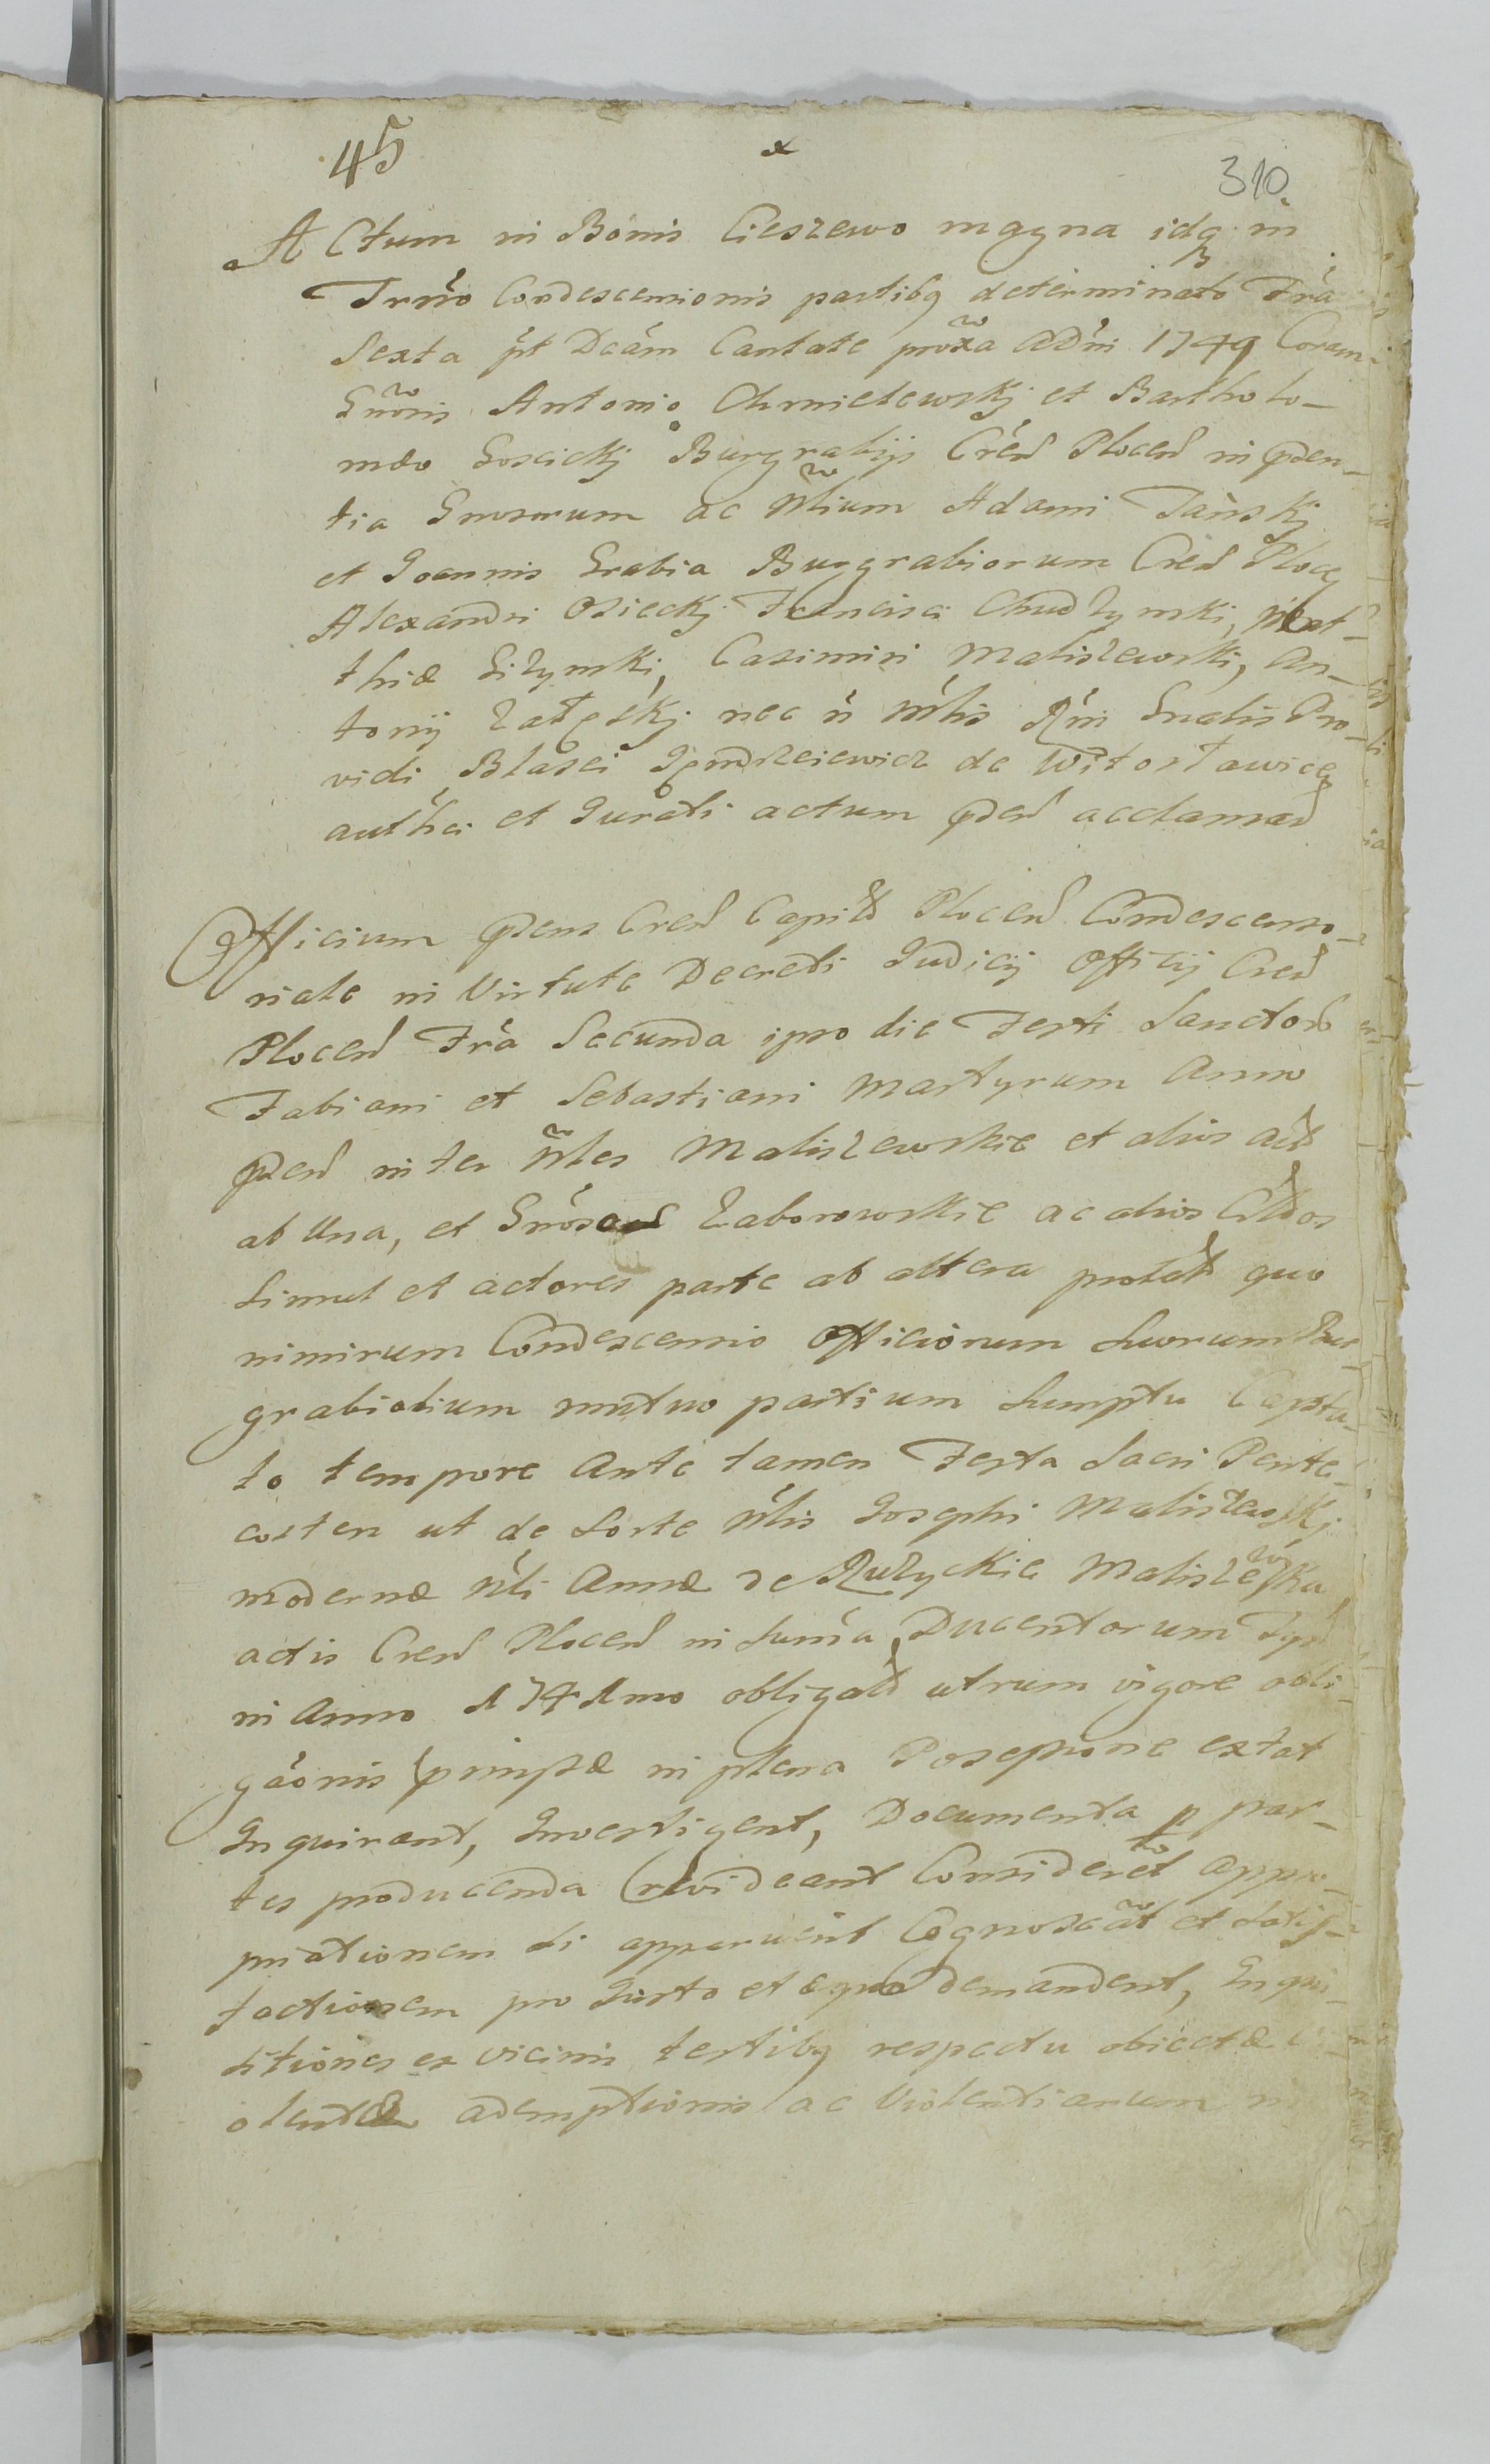 45
310.
Actum in Bonis Cieszewo magna idq in
Trno Condescensionis partibq determinato Fra
Sexta pt Dcam Cantate proxa ADni 1749 Coram
Gnosis Antonio Chmielewskj et Bartholo-
mæo Goscickj Burgrabijs Cren Plocen in pden-
tia Gnosorum ac Nlium Adami Tańskj
et Joannis Grabia Burgrabiorum Cren Ploce
Alexandri Osieckj Francisci Chudzynski, Mat-
thiæ Gizynski, Casimiri Maliszewski, An-
tonij Załęskj nec n Mlis Rni Gnalis Pro-
vidi Blasei Jendrzeiewicz de Witosławice
authci et Jurati actum pden acclamam
Officium pdens Cren Capitl Plocen Condescenso-
riale in Virtute Decreti Judicij Officij Cren
Plocen Fra Secunda ipso die Festi Sanctor
Fabiani et Sebastiani Martyrum Anno
pden inter Nles Maliszewskie et alios act
ab Una, et Gnosos Zaborowskie ac alios Cittos
simul et actores parte ab altera prolat quo
nimirum Condescensio Officiorum Suorum Bur-
grabialium mutuo partium Sumptu Captu-
to tempore Ante tamen Festa Sacri Pente-
costen ut de Sorte Nlis Josephi Maliszewskj
modernæ Nli Annæ de Ruzyckie Maliszewska
actis Cren Plocen in Suma Ducentorum Typf
in Anno 1741mo obligat utrum vigore obli-
gaonis pmissæ in plena Possessione extat
Inquirant, Investigent, Documenta p par-
tes producenda revideant Consideret appro-
priationem si apparuerit Cognoscat et Satis-
factionem pro Justo et æquo demandent, Inqui-
sitiones ex vicinis testibq respectu obiectæ
olentæ ademptionis ac Violentiarum